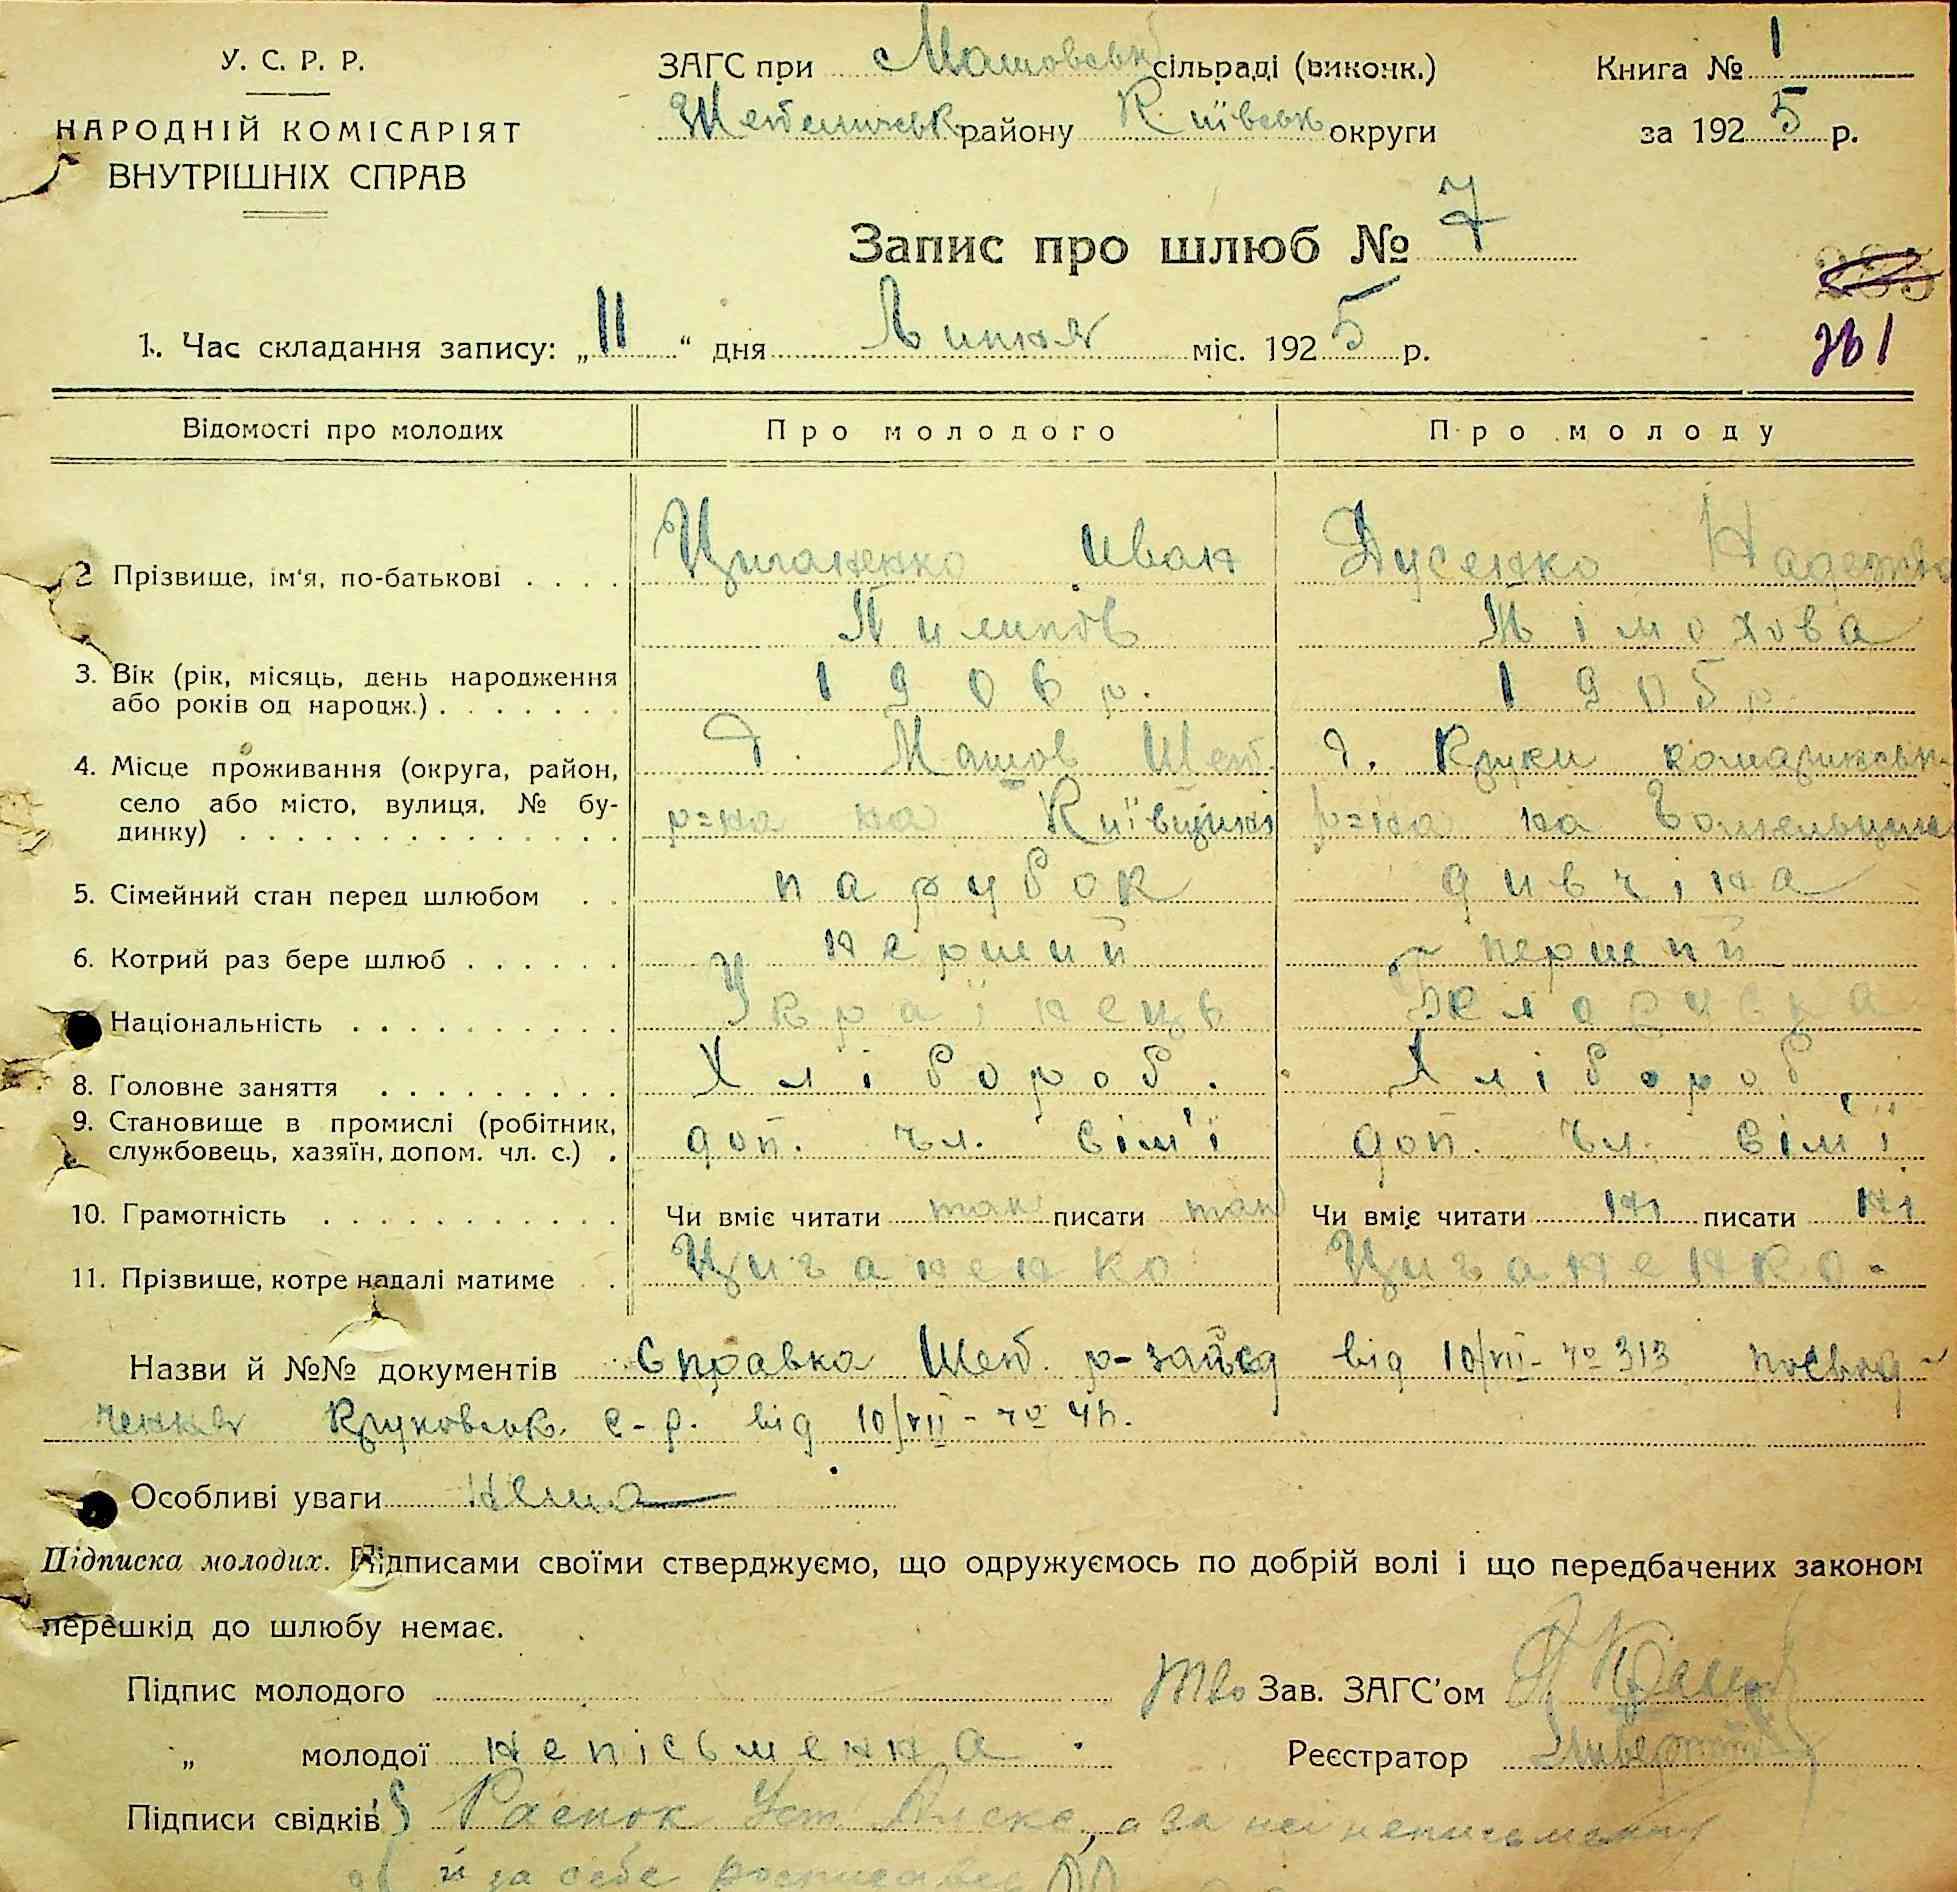 У. С. Р. Р.
НАРОДНІЙ КОМІСАРІЯТ
ВНУТРІШНІХ СПРАВ
ЗАГС при Машовськ сільраді (виконк.)
Шепелицьк району Київськ округи
Книга № 1
за 1925 р.
Запис про шлюб № 7
1. Час складання запису: „11“ дня Липня міс. 1925 р.
Відомості про молодих Про молодого Про молоду
2 Прізвище, ім'я, по-батькові . . . . Циганенко Иван Дусенко Надежда
Пилипів Тімохова
3. Вік (рік, місяць, день народження
або років од народж.) . . . . . . . 1906 р. 1905 р.
4. Місце проживання (округа, район, д. Машов Шеп. д. Круки комаринськ.
село або місто, вулиця, № бу- р=на на Київщині р=на на Гомельщине
динку) . . . . . . . . . . . . . .
5. Сімейний стан перед шлюбом . . парубок дивчіна
6. Котрий раз бере шлюб . . . . . . перший перший
Національність . . . . . . . . . . Українець Білоруска
8. Головне заняття . . . . . . . . . Хлібороб. Хлібороб
9. Становище в промислі (робітник,
службовець, хазяїн, допом. чл. с.) . доп. чл. сім'ї доп. чл. сім'ї
10. Грамотність . . . . . . . . . . . Чи вміє читати так писати так Чи вміє читати ні писати ні
11. Прізвище, котре надалі матиме . Циганенко Циганенко.
Назви й №№ документів Справка Шеп. р- від 10/VII - № 313 посвід-
чення Круковськ. с-р. від 10/VII - №
Особливі уваги нема
Підписка молодих. Підписами своїми стверджуємо, що одружуємось по добрій волі і що передбачених законом
перешкід до шлюбу немає.
Підпис молодого
Тво Зав. ЗАГС'ом
„ молодої непісьменна.
Реєстратор
Підписи свідків а за неі неписьменну
й за себе росписавсь